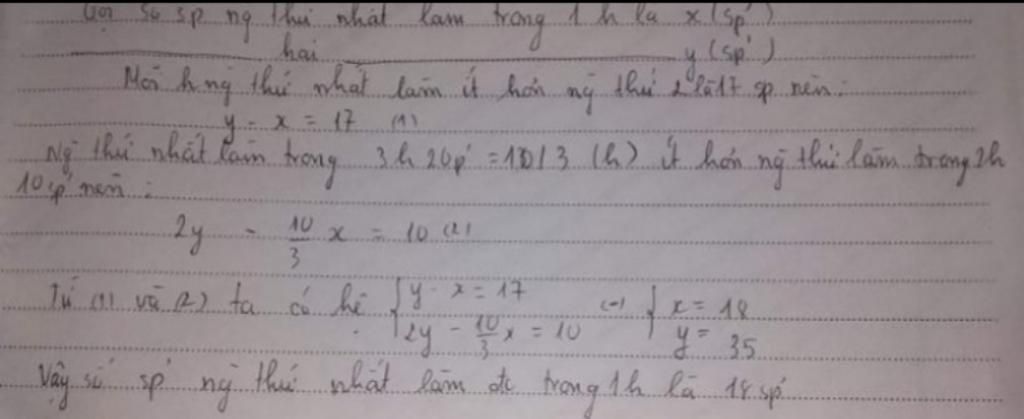 Gọi số sp ng thứ nhất làm trong 1 h là x (sp)
hai y (sp)
Mỗi h ng thứ nhất làm ít hơn ng thứ 2 là 17 sp nên:
y - x = 17 (1)
Ng thứ nhất làm trong 3h 20p' = 10/3 (h) ít hơn ng thứ làm trong 2h
10 sp nên:
2y - 10/3 x = 10 (2)
Từ (1) và (2) ta có hệ { y - x = 17 (=) { x = 18
2y - 10/3 x = 10 y = 35
Vậy số sp ng thứ nhất làm đc trong 1h là 18 sp